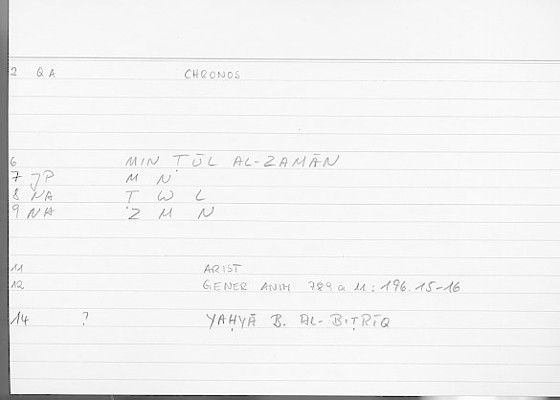 2 QA CHRONOS
6 MIN ṬŪL AL-ZAMĀN
7 JP M N
8 NA Ṭ W L
9 NA Z M N
11 ARIST
12 GENER ANIM 789 a 11: 196.15-16
14 ? YAḤYĀ B. AL-BIṬRĪQ